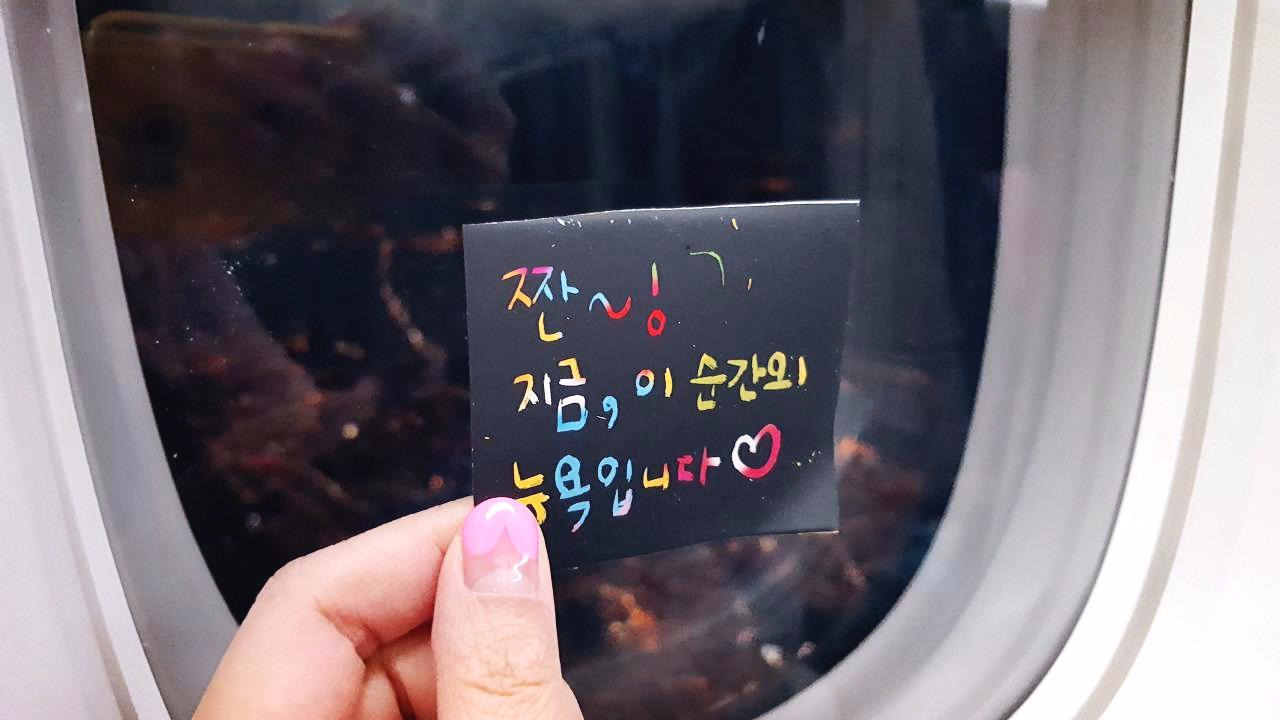 짠~!
지금, 이 순간의
뉴욕입니다♡